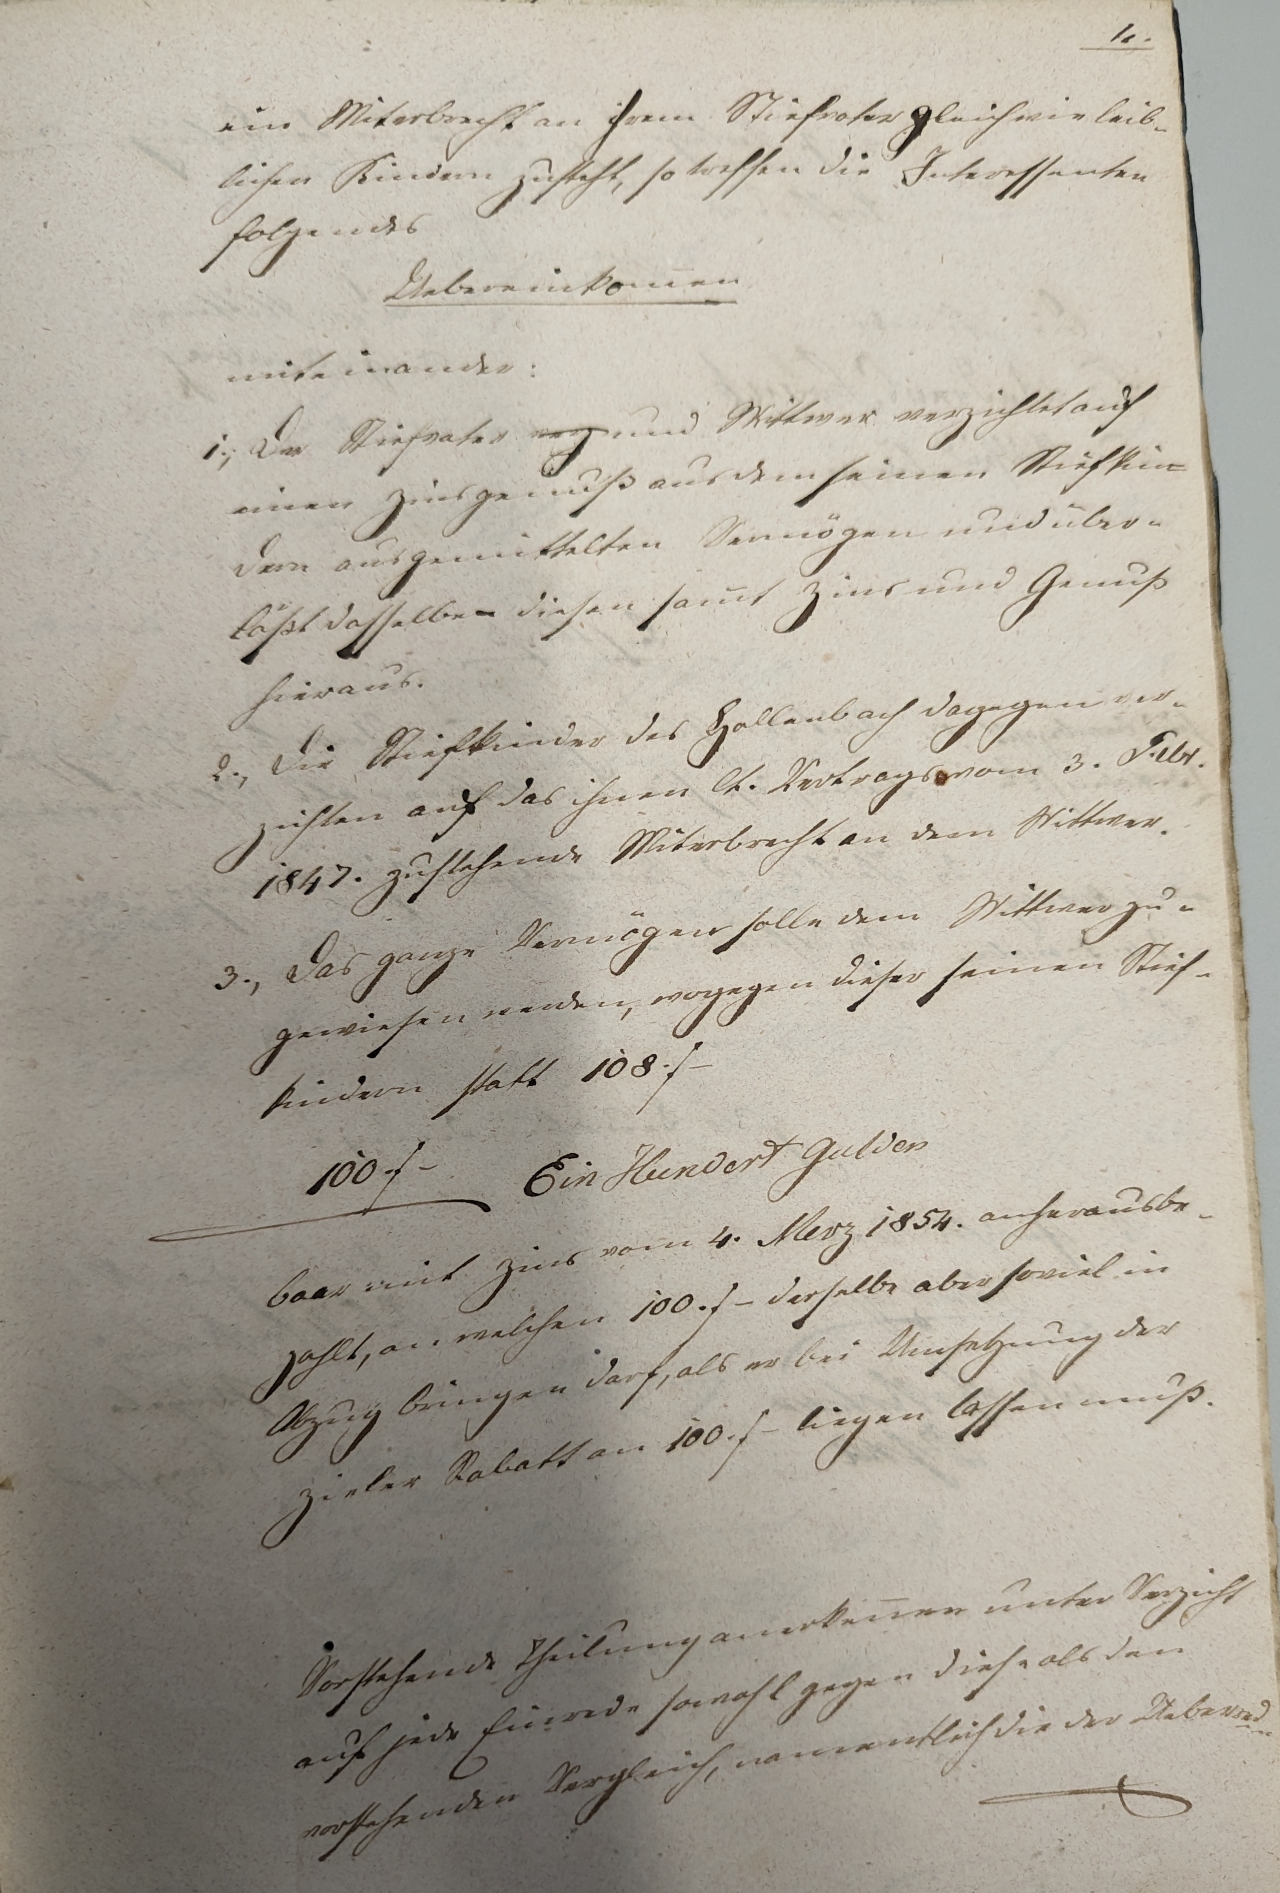 4.
ein Miterbrecht an ihrem Stiefvater gleichwie leib-
lichen Kindern zusteht, so treffen die Interessenten
folgendes
Uebereinkom̅en
miteinander:
1., Der Stiefvater und Wittwer verzichtet auf
einen Zinsgenuß aus dem seinen Stiefkin-
dern ausgemittelten Vermögen und über-
läßt dasselbe diesen sam̅t Zins und Genuß
hieraus.
2., Die Stiefkinder des Hollenbach dagegen ver-
zichten auf das ihnen lt. Vertrags vom 3. Febr.
1847. zustehende Miterbrecht an dem Wittwer.
3., Das ganze Vermögen solle dem Wittwer zu-
gewiesen werden, wogegen dieser seinen Stief-
kindern statt 108 f –
100 f – Ein Hundert Gulden
baar mit Zins vom 4. Merz 1854. anherausbe-
zahlt, an welchen 100. f – derselbe aber soviel in
Abzug bringen darf, als er bei Umsetzung der
Zieler Rabatt an 100. f – liegen lassen muß.
Vorstehende Theilung anerken̅en unter Verzicht
auf jede Einrede sowohl gegen diese als den
vorstehenden Vergleich, namentlich die der Ueberred-